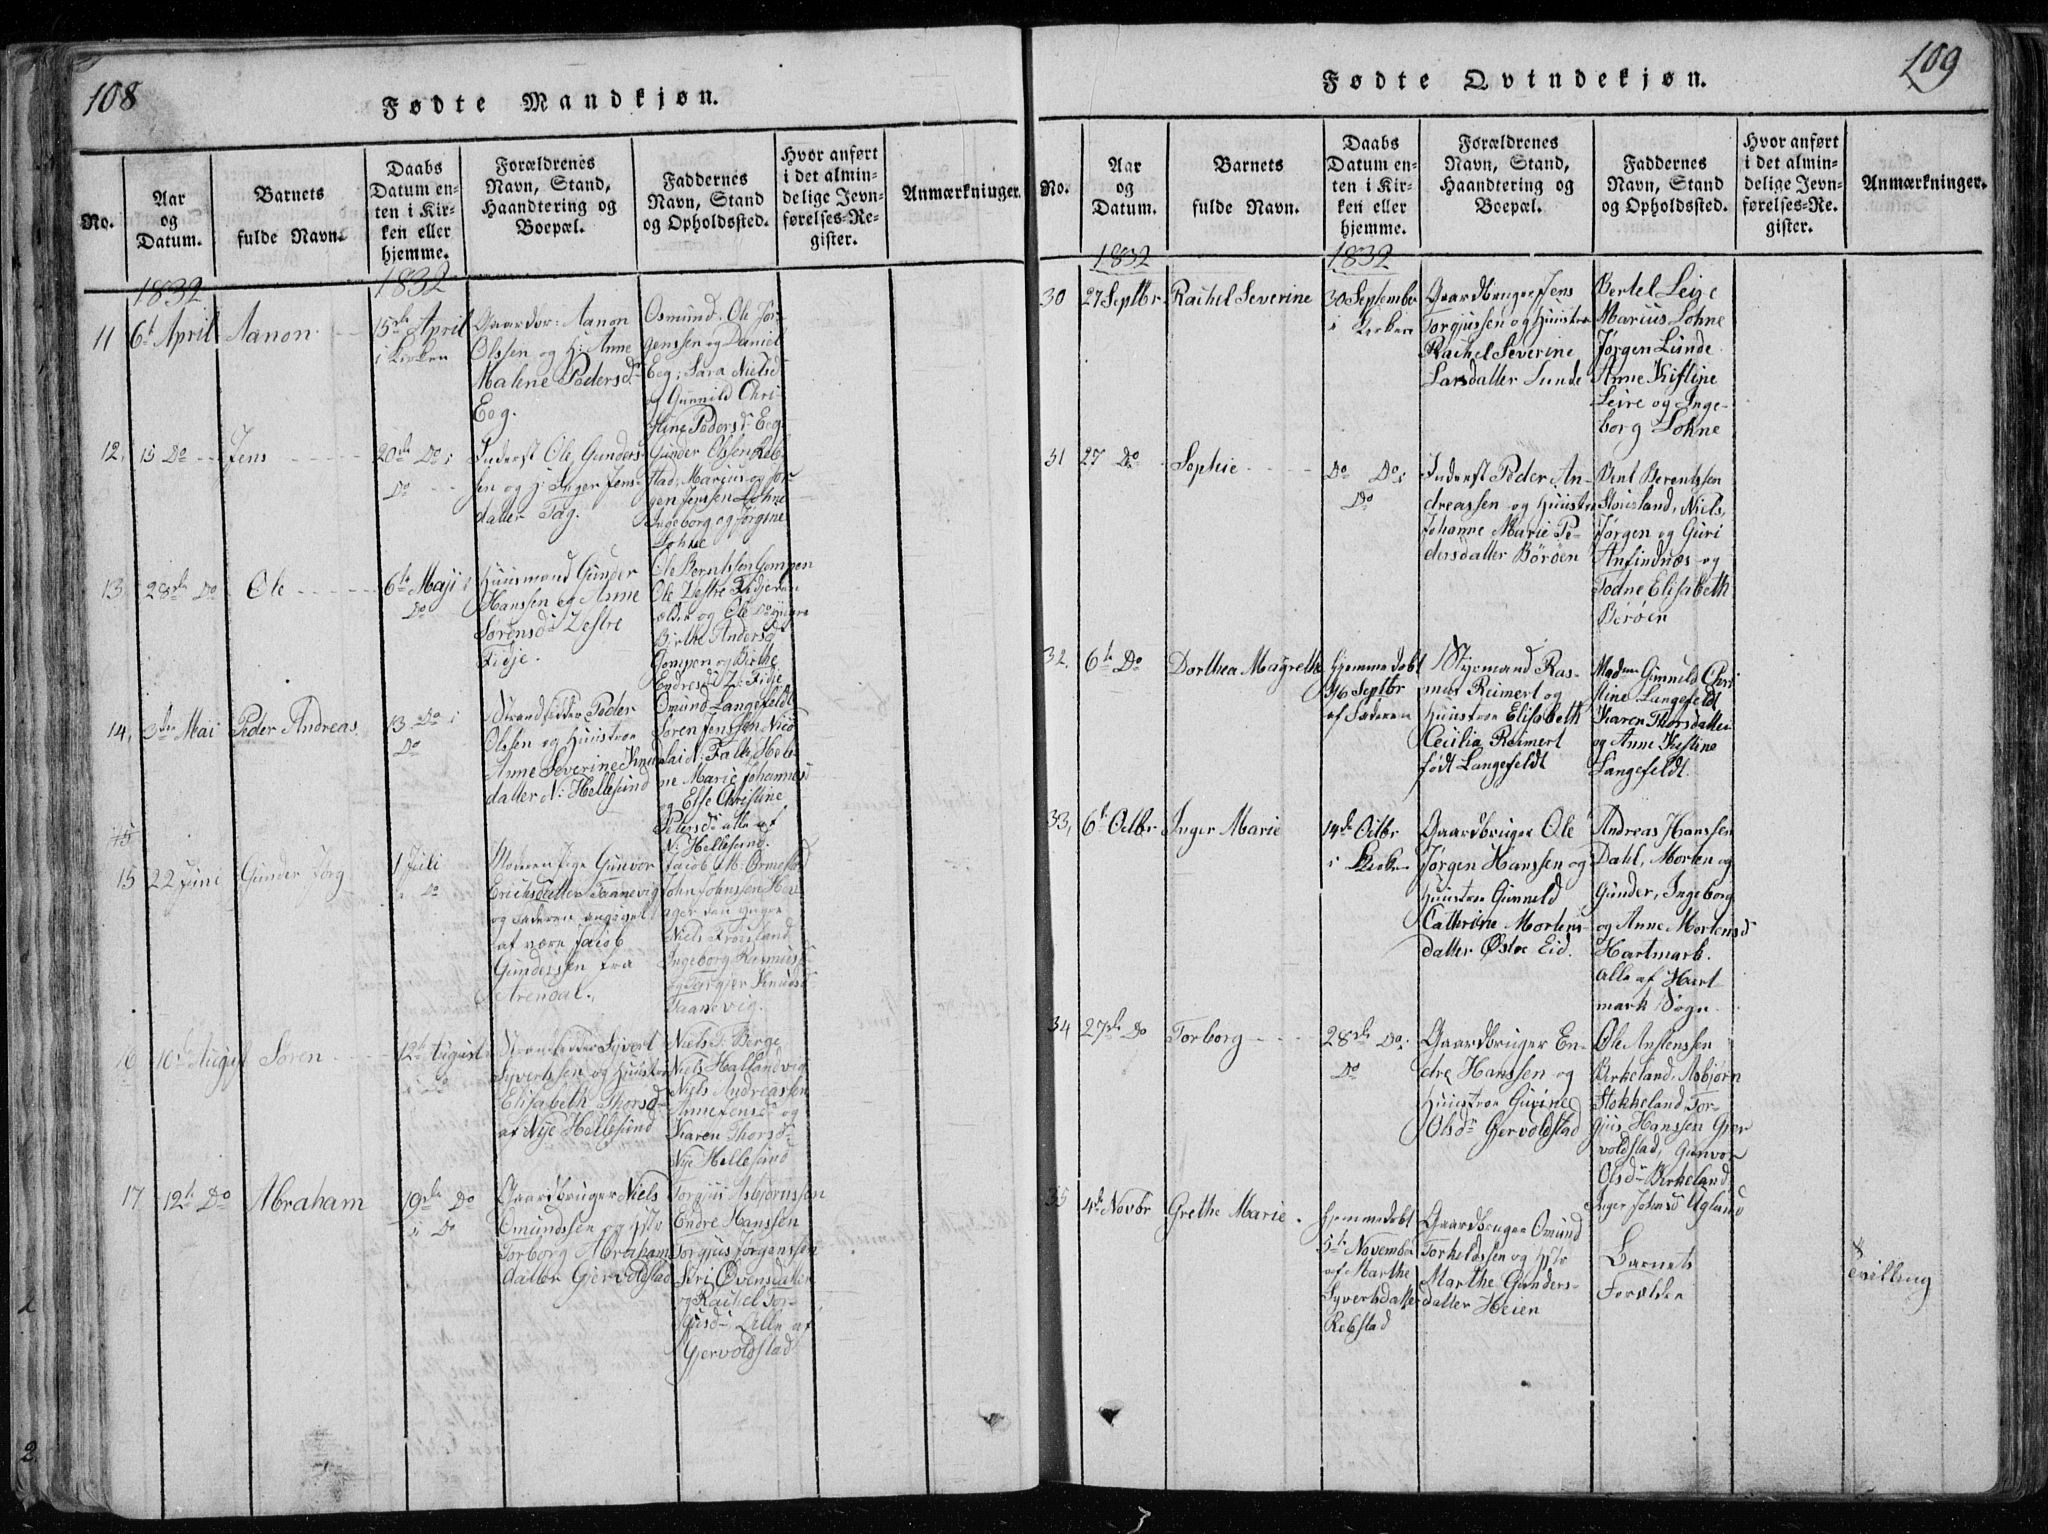 108
Fødte Mandkjøn.
No.
Aar
og
Datum.
Barnets
fulde Navn.
Daabs
Datum en-
ten i Kir-
ken eller
hjemme.
Forældrenes
Navn, Stand,
Haandtering og
Boepæl.
Faddernes
Navn, Stand
og Opholdssted.
Hvor anført
i det almin-
delige Jevn-
førelses-Re-
gister.
Anmærkninger.
1832
1832
11
6t April
Aanon
15de April
i Kirken
Gaardbr: Aanon
Olssen og H: Anne
Malene Pedersd
Eeg.
Osmund, Ole Jør-
genssen og Daniel
Eeg; Sara Nielsd
og Gunnild Chri-
stine Pedersd Eeg
12.
15 Do
Jens
20de Do i
Do
Inderst Ole Gunders-
sen og H: Inger Jens-
datter Fag.
Gunder Olssen Reb-
stad, Marcus og Jør-
gen Jenssen Lohne
Ingeborg og Jørgine
Lohne
13
28de Do
Ole
6te Maji i
Do
Huusmand Gunder
Hanssen og Anne
Sørensd Vestre
Fidje.
Ole Berntssen Gompen
Ole Vestre Fidje den
ældre og Ole Do yngre
Birthe Andersd
Gompen og Birthe
Endresd V: Fidje
14,
3die Mai
Peder Andreas
13 Do i
Do
Strandsidder Peder
Olssen og Huustroe
Anne Severine Knud
datter N: Hellesund
Omund Langefeldt
Søren Jenssen Nico
lai N: Falk, Hele-
ne Marie Johannesd
og Else Christine
Petersd alle af
N: Hellesund.
15
15
22 Juni
Gunder Jørg
1 Juli
i Do
Moderen Pige Gunvor
Erichsdatter Taanevig
og Faderen angivet
at være Jacob
Gunderssen fra
Arendal.
Jacob M. Ormestad
John Johnssen
ager den yngre
Niels
Ingeborg Rasmusd
og Torgier Knudsd
Taanevig.
16
10de August
Søren
12te August
i Do
Strandsidder Syvert
Syvertssen og Huustroe
Elisabeth Thorsd
af Nye Hellesund
Niels T: Berge
Niels Hallandvig
Niels Andreassen
Anne Jensd og
Karen Thorsd
Nye Hellesund
17
12te Do
Abraham
19de Do
i Do
Gaardbruger Niels
Omundssen og Hstr
Torborg Abraham
datter Gjervoldstad
Torgius Asbjørnssen
Endre Hanssen
Torgjus Jørgenssen
Siri Øvensdatter
og Rachel Tor-
giusd Alle af
Gjervoldstad
109
Fødte Qvindekjøn.
No.
Aar
og
Datum.
Barnets
fulde Navn.
Daabs
Datum en-
ten i Kir-
ken eller
hjemme.
Forældrenes
Navn, Stand,
Haandtering og
Boepæl.
Faddernes
Navn, Stand
og Opholdssted.
Hvor anført
i det almin-
delige Jevn-
førelses-Re-
gister.
Anmærkninger.
1832
1832
30
27 Septbr
Rachel Severine
30 September
i Kirken
Gaardbruger Jens
Torgjussen og Huustroe
Rachel Severine
Larsdatter Lunde
Bertel Leire
Marius Lohne
Jørgen Lunde
Anne Kistine
Leire og Inge-
borg Lohne
31
27 Do
Sophie
Do Do i
Do
Inderst Peder An-
dreassen og Huustroe
Johanne Marie Pe-
dersdatter Børøen
Bent Berentssen
Stousland, Niels,
Jørgen og Guri
Anfindnæs og
Todne Elisabeth
Børøen
32.
6te Do
Dorthea Magrethe
Hjemmedøbt
16 Septbr
af Faderen
Styrmand Ras-
mus Reimert og
Huustroe Elisabeth
Cecilia Reimert
født Langefeldt
Madme Gunneld Chri
stine Langefeldt
Karen Thorsdatter
og Anne Kistine
Langefeldt
33,
6te Octbr
Inger Marie
14de Octbr
i Kirken
Gaardbruger Ole
Jørgen Hanssen og
Huustroe Gunneld
Cathrine Mortens-
datter Østre Eid.
Andreas Hanssen
Dahl, Morten og
Gunder, Ingeborg
og Anne Mortensd
Hartmark.
Alle af Hart-
mark Sogn.
34
27de Do
Torborg
28de Do i
Do
Gaardbruger En-
dre Hanssen og
Huustroe Gurine
Olsdr Gjervoldstad
Ole Anstenssen
Birkeland, Asbjørn
Stokkeland, Tor-
gjus Hanssen Gjer
voldstad, Gunvor
Olsd Birkeland
Inger Johnsd Ugland
35
4de Novbr
Grethe Marie.
Hjemmedøbt
5te November
af Marthe
Syvertsdatter
Rebstad
Gaardbruger Omund
Torkeldssen og Hstr
Marthe Gunders-
datter Heien
Barnets
Forældre
Tvilling